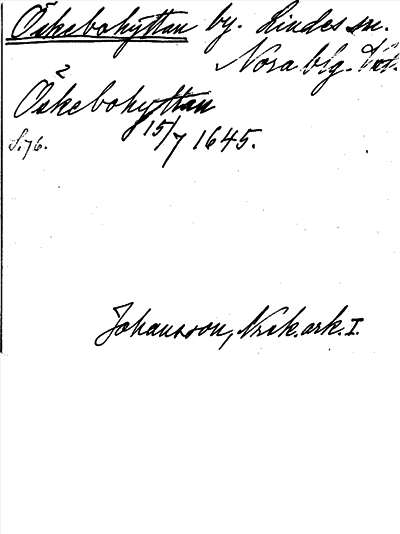 Öskebohyttan by. Lindes sn.
Nora blg. Väst.
2
Öskebohyttan
15/7 1645.
S. 76.
Johansson, Nrsk. ark. I.